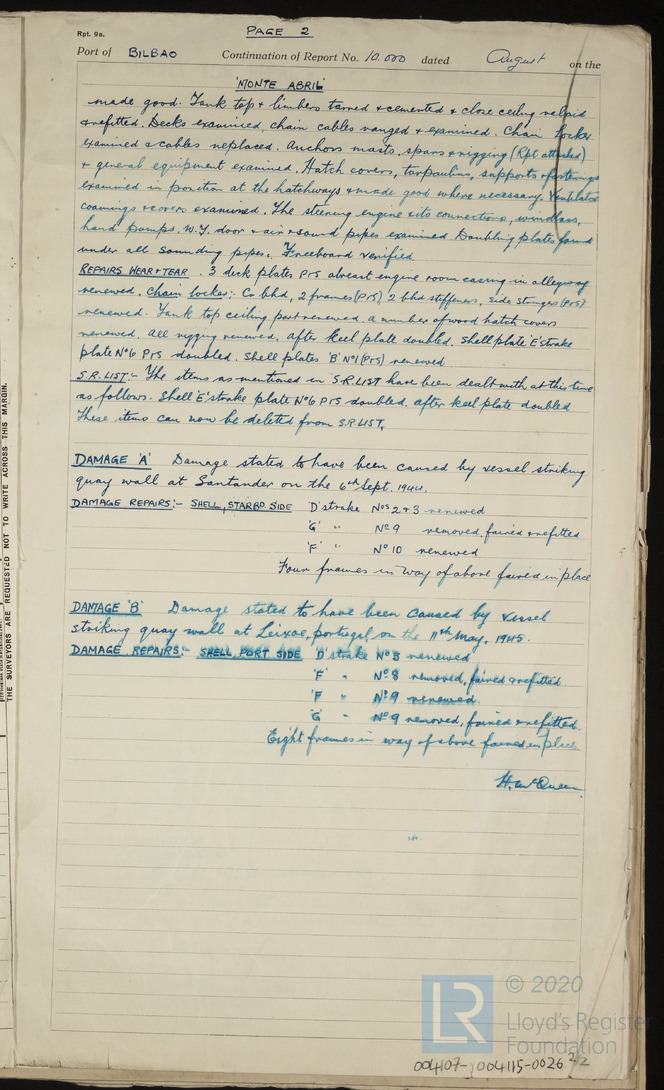 PAGE 2
Rpt. 9a.
Port of BILBAO Continuation of Report No. 10.000 dated August on the
'MONTE ABRIL'
made good. Tank top & limbers tarred & cemented & close ceiling relaid
& refitted. Decks examined, chain cables ranged & examined. Chain locker
examined & cables replaced. Anchors masts, spars & rigging (Rpt attached)
& general equipment examined. Hatch covers, tarpaulins, supports & fastenings
examined in position at the hatchways & made good where necessary. Ventilator
coamings & covers examined. The steering engine & its connections, windlass,
hand pumps. W.T. door & air & sound pipes examined Doubling plates found
under all sounding pipes. Freeboard verified
REPAIRS WEAR & TEAR. 3 deck plates P&S abreast engine room casing in alleyway
renewed. Chain locker: Cr bhd, 2 frames (P&S) 2 bhd stiffeners, side stringers (P&S)
renewed. Tank top ceiling part renewed. A number of wood hatch covers
renewed. All rigging renewed, after keel plate doubled. Shell plate 'E' strake
plate No 6 P&S doubled. Shell plates 'B' No 1 (P&S) renewed
S.R. LIST:- The items as mentioned in S.R LIST have been dealt with at this time
as follows. Shell 'E' strake plate No 6 P&S doubled. After keel plate doubled
These items can now be deleted from S.R LIST.
DAMAGE 'A' Damage stated to have been caused by vessel striking
quay wall at Santander on the 6th Sept. 1944.
DAMAGE REPAIRS:- SHELL, STARBD SIDE 'D' strake Nos 2 & 3 renewed
'G' " No 9 removed, faired & refitted
'F' " No 10 renewed
Four frames in way of above faired in place
DAMAGE 'B' Damage stated to have been caused by vessel
striking quay wall at Leixoe, portugal on the 11th May, 1945.
DAMAGE REPAIRS:- SHELL, PORT SIDE 'D' strake No 3 renewed
'F' " No 8 removed, faired & refitted
'F' " No 9 renewed.
'G' " No 9 removed, faired & refitted.
Eight frames in way of above faired in place
H. McQueen
THE SURVEYORS ARE REQUESTED NOT TO WRITE ACROSS THIS MARGIN.
LR
© 2020
Lloyd's Register
Foundation
004107-004115-0026 2/2